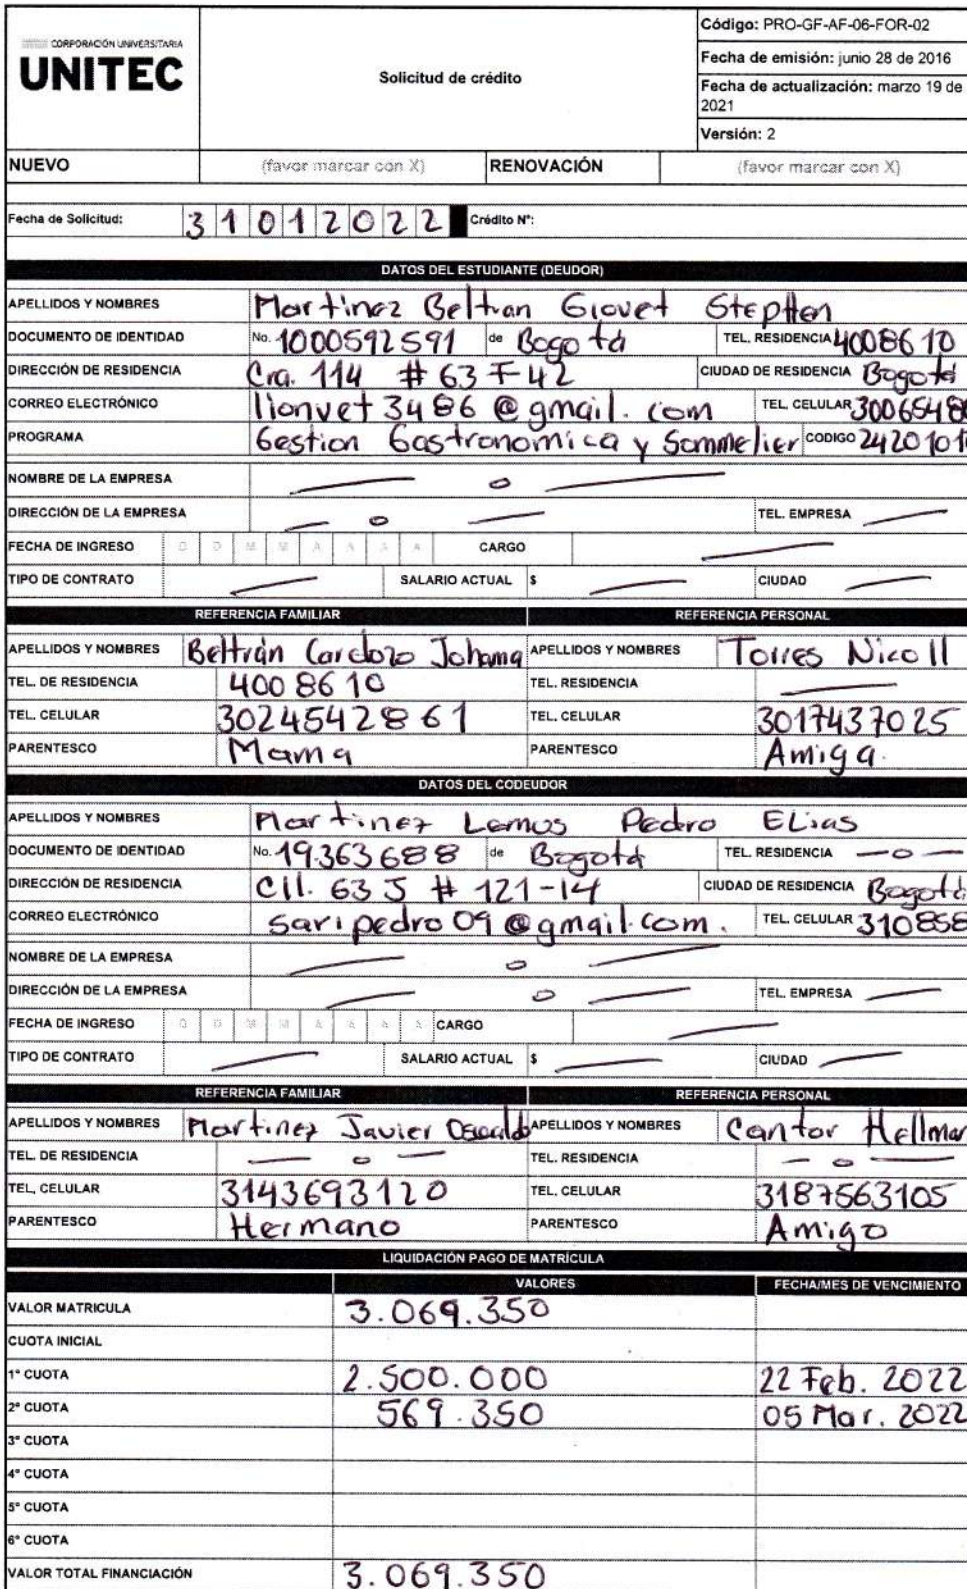 CORPORACIÓN UNIVERSITARIA
UNITEC
Solicitud de crédito
Código: PRO-GF-AF-06-FOR-02
Fecha de emisión: junio 28 de 2016
Fecha de actualización: marzo 19 de
2021
Versión: 2
NUEVO (favor marcar con X) RENOVACIÓN (favor marcar con X)
Fecha de Solicitud: 31012022 Crédito N°:
DATOS DEL ESTUDIANTE (DEUDOR)
APELLIDOS Y NOMBRES Martinez Beltran Giovet Stephen
DOCUMENTO DE IDENTIDAD No. 1000592591 de Bogotá TEL. RESIDENCIA 4008610
DIRECCIÓN DE RESIDENCIA Cra. 114 # 63 F 42 CIUDAD DE RESIDENCIA Bogotá
CORREO ELECTRÓNICO lionvet3486@gmail.com TEL. CELULAR 30065486
PROGRAMA Gestion Gastronomica y Sommelier CODIGO 2420101
NOMBRE DE LA EMPRESA — o —
DIRECCIÓN DE LA EMPRESA — o — TEL. EMPRESA —
FECHA DE INGRESO D D M M A A A A CARGO —
TIPO DE CONTRATO — SALARIO ACTUAL $ — CIUDAD —
REFERENCIA FAMILIAR REFERENCIA PERSONAL
APELLIDOS Y NOMBRES Beltrán Cardozo Johana APELLIDOS Y NOMBRES Torres Nicoll
TEL. DE RESIDENCIA 4008610 TEL. RESIDENCIA —
TEL. CELULAR 3024542861 TEL. CELULAR 3017437025
PARENTESCO Mama PARENTESCO Amiga.
DATOS DEL CODEUDOR
APELLIDOS Y NOMBRES Martinez Lemus Pedro Elias
DOCUMENTO DE IDENTIDAD No. 19.363688 de Bogotá TEL. RESIDENCIA — o —
DIRECCIÓN DE RESIDENCIA Cll. 63 J # 121-14 CIUDAD DE RESIDENCIA Bogotá
CORREO ELECTRÓNICO saripedro09@gmail.com. TEL. CELULAR 310858
NOMBRE DE LA EMPRESA — o —
DIRECCIÓN DE LA EMPRESA — o — TEL. EMPRESA —
FECHA DE INGRESO D D M M A A A A CARGO —
TIPO DE CONTRATO — SALARIO ACTUAL $ — CIUDAD —
REFERENCIA FAMILIAR REFERENCIA PERSONAL
APELLIDOS Y NOMBRES Martinez Javier Oswaldo APELLIDOS Y NOMBRES Cantor Hellmar
TEL. DE RESIDENCIA — o — TEL. RESIDENCIA — o —
TEL. CELULAR 3143693120 TEL. CELULAR 3187563105
PARENTESCO Hermano PARENTESCO Amigo
LIQUIDACIÓN PAGO DE MATRÍCULA
VALORES FECHA/MES DE VENCIMIENTO
VALOR MATRICULA 3.069.350
CUOTA INICIAL
1ª CUOTA 2.500.000 22 Feb. 2022
2ª CUOTA 569.350 05 Mar. 2022
3ª CUOTA
4ª CUOTA
5ª CUOTA
6ª CUOTA
VALOR TOTAL FINANCIACIÓN 3.069.350